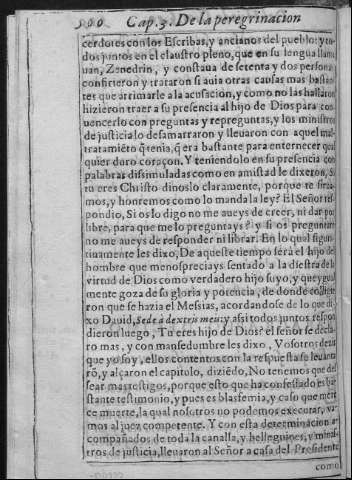 500 Cap. 3. De la peregrinacion
cerdotes con los Escribas, y ancianos del pueblo: y to
dos juntos en el claustro pleno, que en su lengua llama
uan, Zenedrin, y constaua de setenta y dos personas
confirieron y trataron si auia otras causas mas bastan
tes que arrimarle a la acusacion, y como no las hallaron
hizieron traer a su presencia al hijo de Dios para con
uencerlo con preguntas y repreguntas, y los ministros
de justicia lo desamarraron y lleuaron con aquel mal
tratamiẽto q̃ tenia, q̃ era bastante para enternecer qual
quier duro coraçon. Y teniendolo en su presencia con
palabras dissimuladas como en amistad le dixeron, Si
tu eres Christo dinoslo claramente, porque te sirua
mos, y honremos como lo manda la ley? El Señor res
pondio, Si os lo digo no me aueys de creer, ni dar por
libre, para que me lo preguntays? y si os preguntare
no me aueys de responder ni librar. En lo qual figura
tiuamente les dixo, De aqueste tiempo serà el hijo del
hombre que menospreciays sentado a la diestra de la
virtud de Dios como verdadero hijo suyo, y que ygual
mente goza de su gloria y potencia, de donde colligie
ron que se hazia el Messias, acordandose de lo que di
xo Dauid, Sede a dextris meis, y assi todos juntos respon
dieron luego, Tu eres hijo de Dios? el señor se decla
ro mas, y con mansedumbre les dixo, Vosotros dezis
que yo soy, ellos contentos con la respuesta se leuanta
rõ, y alçaron el capitulo, diziẽdo, No tenemos que des
sear mas testigos, porque esto que ha confessado es bas
stante testimonio, y pues es blasfemia, y caso que mere
ce muerte, la qual nosotros no podemos executar, va
mos al juez competente. Y con esta determinacion a-
compañados de toda la canalla, y belleguines, y minis
tros de justicia, lleuaron al Señor a casa del Presidente
como